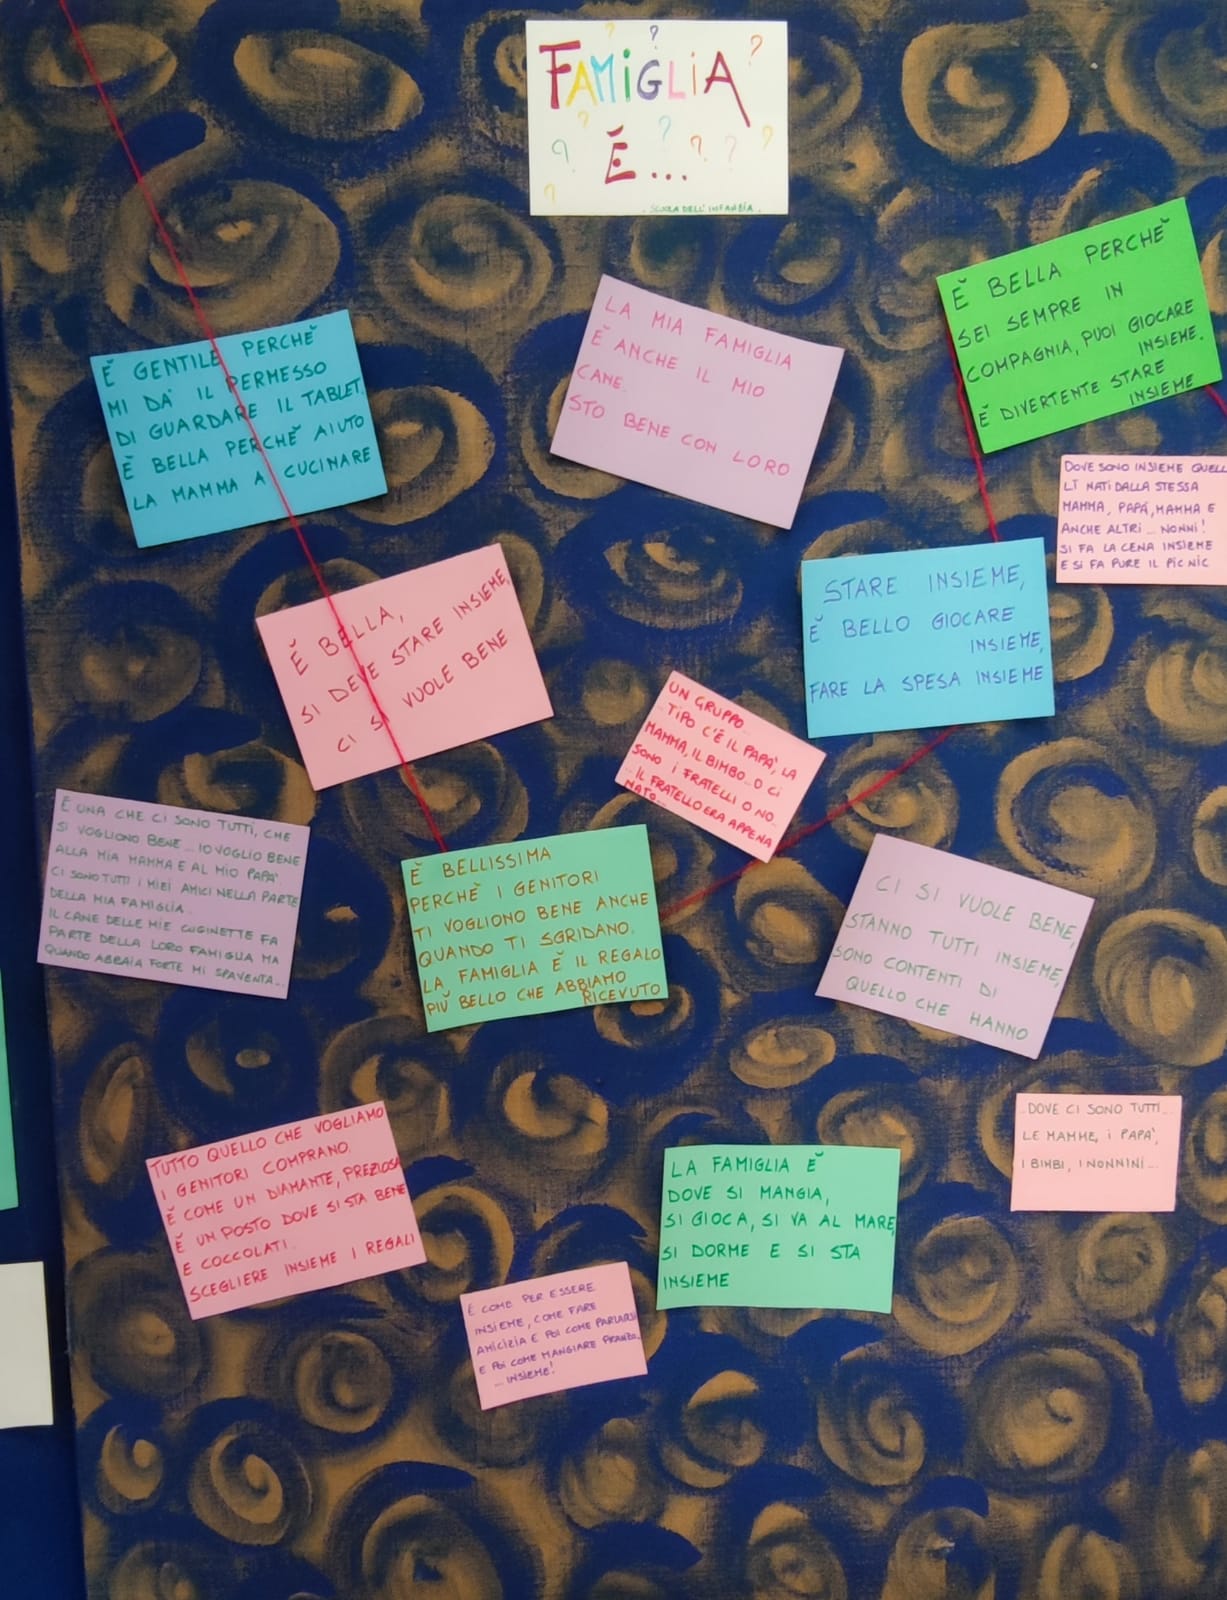 FAMIGLIA
È...
. SCUOLA DELL'INFANZIA .
È GENTILE PERCHÈ
MI DA' IL PERMESSO
DI GUARDARE IL TABLET.
È BELLA PERCHÈ AIUTO
LA MAMMA A CUCINARE
LA MIA FAMIGLIA
È ANCHE IL MIO
CANE.
STO BENE CON LORO
È BELLA PERCHÈ
SEI SEMPRE IN
COMPAGNIA, PUOI GIOCARE
INSIEME.
È DIVERTENTE STARE
INSIEME
DOVE SONO INSIEME QUEL
LÌ NATI DALLA STESSA
MAMMA, PAPÁ, MAMMA E
ANCHE ALTRI... NONNI!
SI FA LA CENA INSIEME
E SI FA PURE IL PIC NIC
È BELLA,
SI DEVE STARE INSIEME,
CI SI VUOLE BENE
STARE INSIEME,
È BELLO GIOCARE
INSIEME,
FARE LA SPESA INSIEME
UN GRUPPO...
...TIPO C'È IL PAPA', LA
MAMMA, IL BIMBO...O CI
SONO I FRATELLI O NO...
...IL FRATELLO ERA APPENA
NATO...
È UNA CHE CI SONO TUTTI, CHE
SI VOGLIONO BENE... IO VOGLIO BENE
ALLA MIA MAMMA E AL MIO PAPA'
CI SONO TUTTI I MIEI AMICI NELLA PARTE
DELLA MIA FAMIGLIA.
IL CANE DELLE MIE CUGINETTE FA
PARTE DELLA LORO FAMIGLIA MA
QUANDO ABBAIA FORTE MI SPAVENTA...
È BELLISSIMA
PERCHÈ I GENITORI
TI VOGLIONO BENE ANCHE
QUANDO TI SGRIDANO.
LA FAMIGLIA È IL REGALO
PIÙ BELLO CHE ABBIAMO
RICEVUTO
CI SI VUOLE BENE,
STANNO TUTTI INSIEME,
SONO CONTENTI DI
QUELLO CHE HANNO
TUTTO QUELLO CHE VOGLIAMO
I GENITORI COMPRANO.
È COME UN DIAMANTE, PREZIOSA
È UN POSTO DOVE SI STA BENE
E COCCOLATI.
SCEGLIERE INSIEME I REGALI
LA FAMIGLIA È
DOVE SI MANGIA,
SI GIOCA, SI VA AL MARE,
SI DORME E SI STA
INSIEME
...DOVE CI SONO TUTTI...
LE MAMME, I PAPA',
I BIMBI, I NONNINI...
È COME PER ESSERE
INSIEME, COME FARE
AMICIZIA E POI COME PARLARSI
E POI COME MANGIARE PRANZO...
...INSIEME!